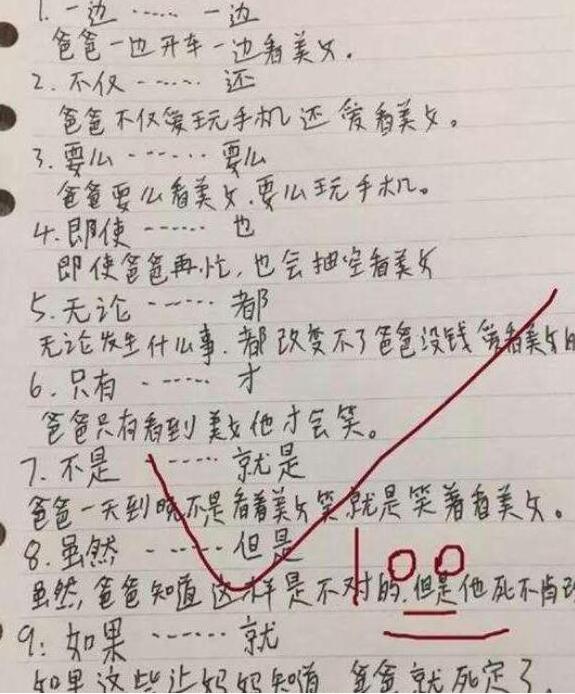 1. 一边 …… 一边
爸爸一边开车一边看美女。
2. 不仅 …… 还
爸爸不仅爱玩手机还爱看美女。
3. 要么 …… 要么
爸爸要么看美女.要么玩手机。
4. 即使 …… 也
即使爸爸再忙,也会抽空看美女
5. 无论 …… 都
无论发生什么事.都改变不了爸爸没钱爱看美女的
6. 只有 …… 才
爸爸只有看到美女他才会笑。
7. 不是 …… 就是
爸爸一天到晚不是看着美女笑就是笑着看美女。
8. 虽然 …… 但是
虽然,爸爸知道这样是不对的.但是他死不肯改
100
9: 如果 …… 就
如果这些让妈妈知道 爸爸就死定了.